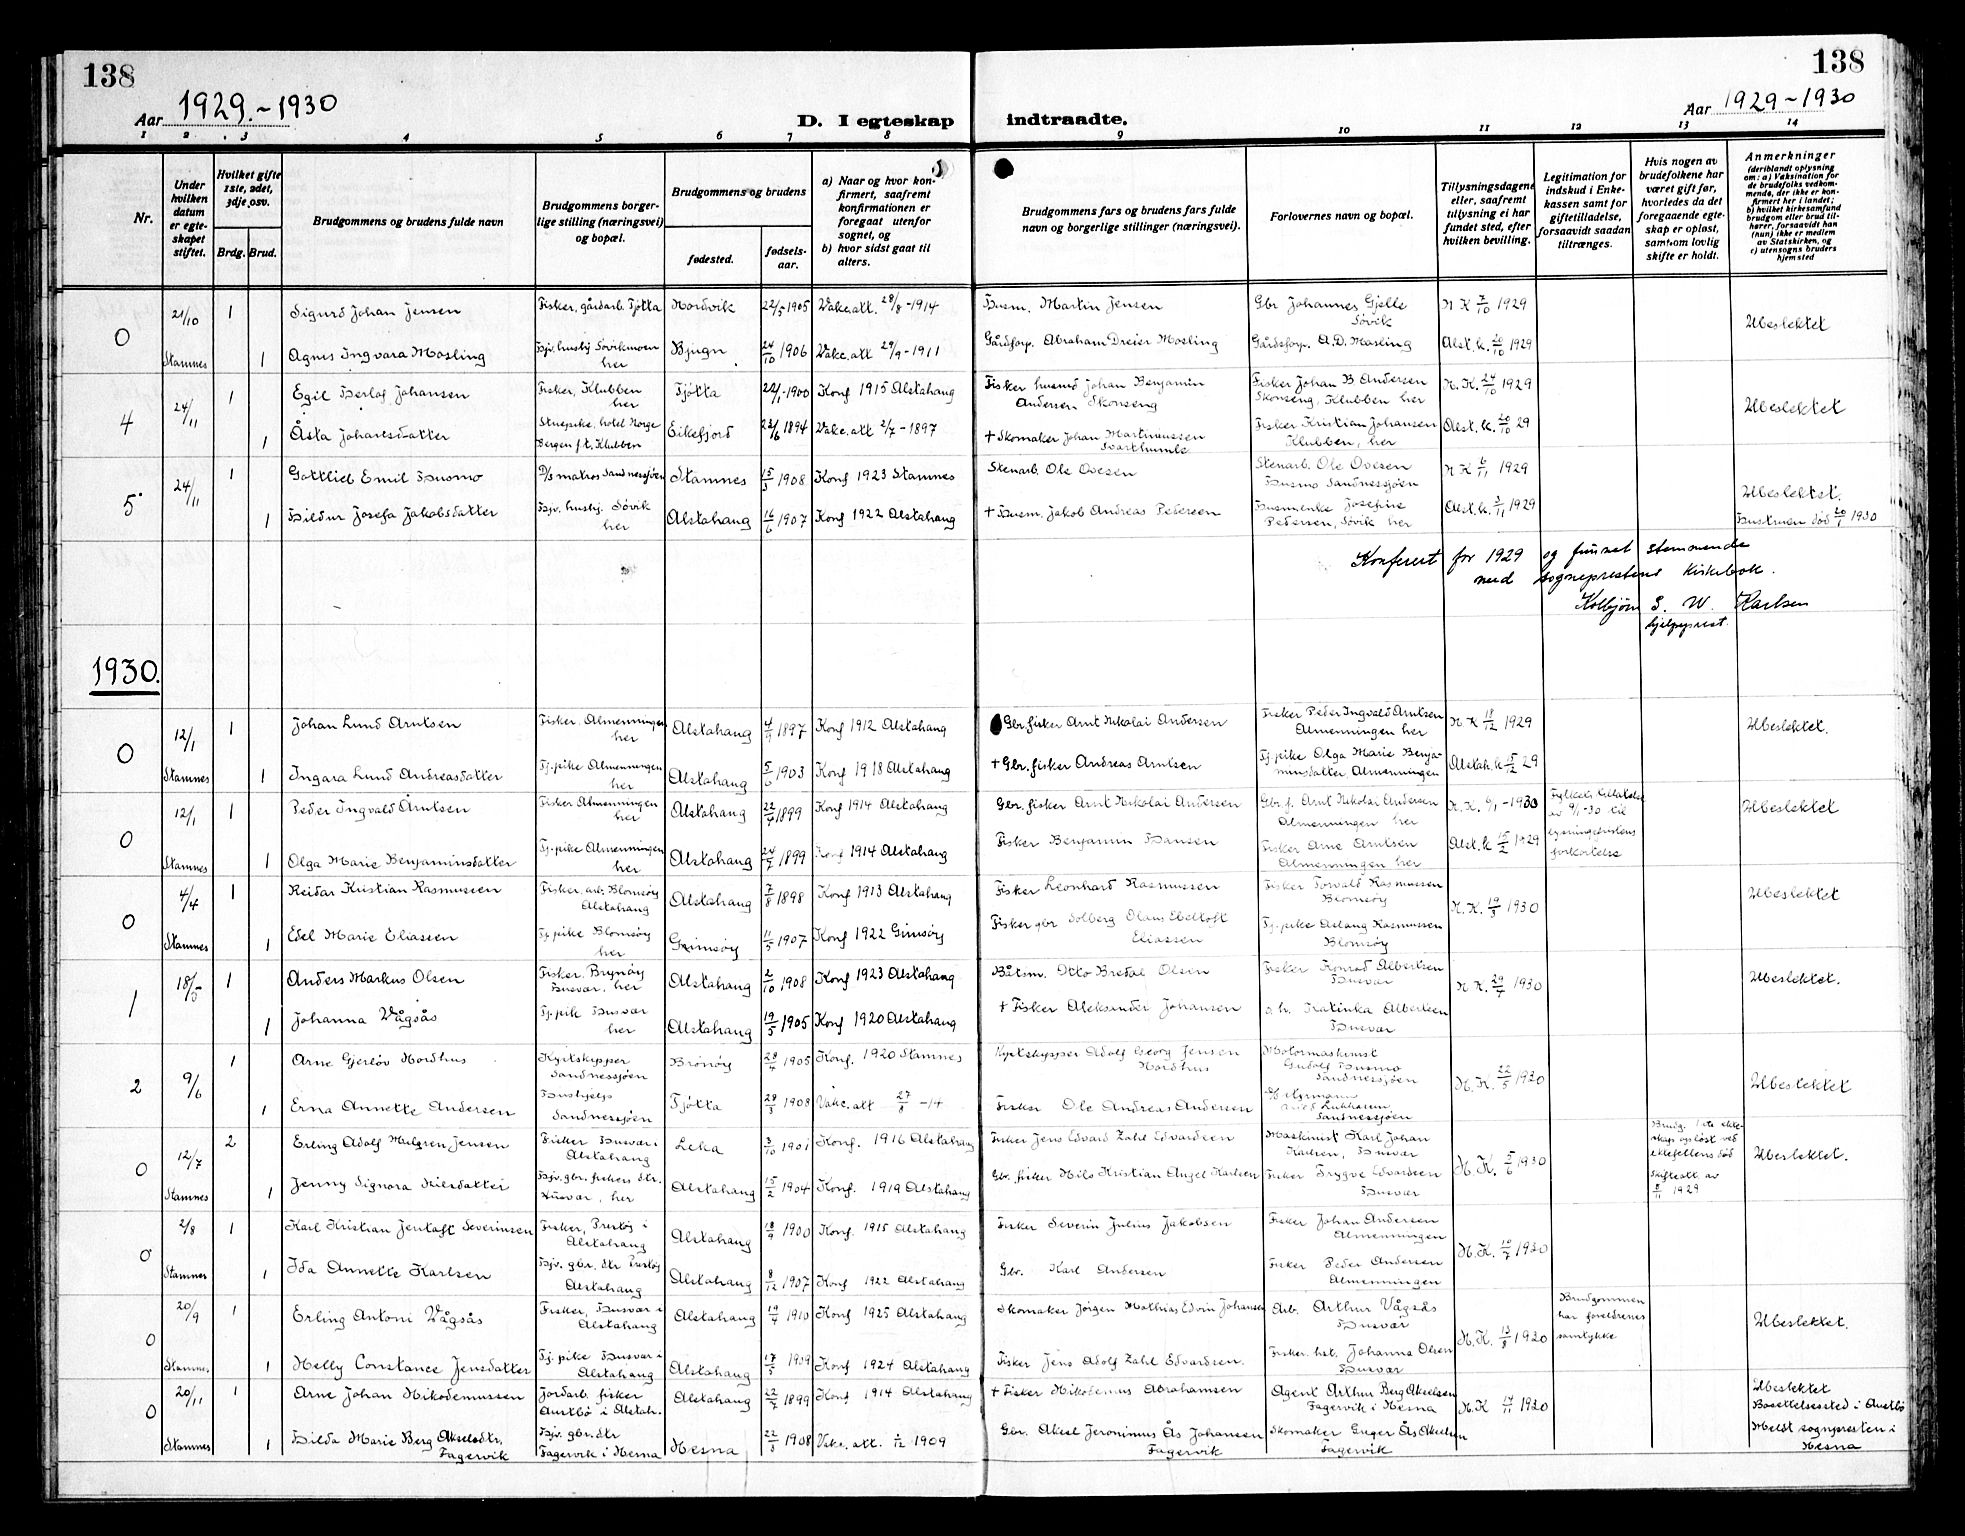 138
138
Aar 1929.~1930
D. I egteskap indtraadte.
Aar 1929~1930
1 2 3 4 5 6 7 8 9 10 11 12 13 14
Nr.
Under hvilken datum er egteskapet stiftet.
Hvilket gifte 1ste, 2det, 3dje, osv.
Brdg. Brud.
Brudgommens og brudens fulde navn
Brudgommens borgerlige stilling (næringsvei) og bopæl.
Brudgommens og brudens
fødested.
fødselsaar.
a) Naar og hvor konfirmert, saafremt konfirmationen er foregaat utenfor sognet, og
b) hvor sidst gaat til alters.
Brudgommens fars og brudens fars fulde navn og borgerlige stillinger (næringsvei).
Forlovernes navn og bopæl.
Tillysningsdagene eller, saafremt tillysning ei har fundet sted, efter hvilken bevilling.
Legitimation for indskud i Enkekassen samt for giftetilladelse, forsaavidt saadan tiltrænges.
Hvis nogen av brudefolkene har været gift før, hvorledes da det foregaaende egteskap er opløst, samt om lovlig skifte er holdt.
Anmerkninger
(deriblandt oplysning om: a) Vaksination for de brudefolks vedkommende, der ikke er konfirmert her i landet; b) hvilket kirkesamfund brudgom eller brud tilhører, forsaavidt han (hun) ikke er medlem av Statskirken, og c) utensogns bruders hjemsted
0 21/10 1 Sigurd Johan Jensen Fisker, gårdarb. Tjøtta Nordvik 22/5-1905 Vakc.att. 28/8-1914 Husm. Martin Jensen Gbr Johannes Gjelle Søvik N K 7/10 1929 Ubeslektet
Stamnes 1 Agnes Ingvara Mosling Hjv. hushj Søvikmoen her Bjugn 24/10 1906 Vakc.att 29/9-1911 Gårdforp. Abraham Dreier Mosling Gårdsforp. A.D. Mosling Alst.k. 20/10 1929
4 24/11 1 Egil Herlof Johansen Fisker, Klubben her Tjøtta 22/1-1900 Konf 1915 Alstahaug Fisker husmd Johan Benjamin Andersen Skonseng Fisker Johan B Andersen Skonseng, Klubben her N.K. 24/10 1929 Ubeslektet
1 Åsta Johansdatter Stuepike, hotel Norge Bergen f.t. Klubben Eikefjord 23/6 1894 Vakc.att 2/7-1897 + Skomaker Johan Martinussen Svarthumle Fisker Kristian Johansen Klubben, her Alst.k. 20/10 29
5 24/11 1 Gottlieb Emil Husmo D/s matros Sandnessjøen Stamnes 15/3 1908 Konf 1923 Stamnes Stenarb. Ole Ovesen Stenarb. Ole Ovesen Husmo Sandnessjøen N K 6/11 1929 Ubeslektet.
1 Hildur Josefa Jakobsdatter Hjv. hushj. Søvik her Alstahaug 16/6 1907 Konf 1922 Alstahaug + Husm. Jakob Andreas Pedersen Husmenke Josefine Pedersen, Søvik her Alst.k. 3/11 1929 Hustruen død 20/1 1930
Konferert for 1929 og funnet stemmende
med sogneprestens kirkebok.
Kolbjørn S. W. Karlsen
hjelpeprest.
1930.
0 12/1 1 Johan Lund Arntsen Fisker, Almenningen her Alstahaug 4/11 1897 Konf 1912 Alstahaug Gbr. fisker Arnt Nikolai Andersen Fisker Peder Ingvald Arntsen Almenningen her N.K 18/12 1929 Ubeslektet.
Stamnes 1 Ingara Lund Andreasdatter Tj. pike Almenningen her Alstahaug 5/5 1903 Konf 1918 Alstahaug + Gbr. fisker Andreas Arntsen Tj. pike Olga Marie Benjaminsdatter, Almenningen Alstah.k 15/12 29
0 12/1 1 Peder Ingvald Arntsen Fisker Almenningen her Alstahaug 22/7 1899 Konf 1914 Alstahaug Gbr. fisker Arnt Nikolai Andersen Gbr. f. Arnt Nikolai Andersen Almenningen her N.K. 6/1-1930 Fylkets tillatelse av 9/1-30 til lysningsfristens forkortelse Ubeslektet
Stamnes 1 Olga Marie Benjaminsdatter Tj. pike Almenningen her Alstahaug 24/7 1899 Konf 1914 Alstahaug Fisker Benjamin Hansen Fisker Arne Arntsen Almenningen her Alst.k 15/12 1929
0 4/4 1 Reidar Kristian Rasmussen Fisker, arb. Blomsøy Alstahaug Alstahaug 7/8 1898 Konf 1913 Alstahaug Fisker Leonhard Rasmussen Fisker Torvald Rasmussen Blomsøy N.K. 19/3 1930 Ubeslektet
Stamnes 1 Edel Marie Eliassen Tj. pike Blomsøy her Gimsøy 11/5 1907 Konf 1922 Gimsøy Fisker gbr Solberg Olaus Ebeltoft Eliassen Tj. pike Aslaug Rasmussen Blomsøy
1 18/5 1 Anders Markus Olsen Fisker, Brynøy Husvær, her Alstahaug 2/10 1908 Konf 1923 Alstahaug Båtsm. Otto Bredal Olsen Fisker Konrad Albertsen Husvær N.K. 29/4 1930 Ubeslektet.
1 Johanna Vågsås Tj. pik Husvær her Alstahaug 19/5 1905 Konf 1920 Alstahaug + Fisker Aleksander Johansen Katinka Albertsen Husvær
2 9/6 1 Arne Gjerløv Nordhus Kystskipper Sandnessjøen Brønøy 28/4 1905 Konf. 1920 Stamnes Kystskipper Adolf Georg Jensen Nordhus Motormaskinist Gudolf Husmo Sandnessjøen N.K. 22/5 1930 Ubeslektet
1 Erna Annette Andersen Hushjelp Sandnessjøen Tjøtta 28/3 1908 Vakc.att 27/8-14 Fisker Ole Andreas Andersen Sandnessjøen
0 12/7 2 Erling Adolf Melgren Jensen Fisker Husvær i Alstahaug Leka 3/10 1901 Konf. 1916 Alstahaug Fisker Jens Edvard Zahl Edvardsen Maskinist Karl Johan Karlsen, Husvær N.K. 5/6 1930 Brudg. 1ste ekteskap opløst ved ektefellens død Skifteatt av 8/11 1929 Ubeslektet.
Stamnes 1 Jenny Signora Nilsdatter Hjv. gbr. fiskers dtr. Husvær, her Alstahaug 15/2 1904 Konf. 1919 Alstahaug Gbr. fisker Nils Kristian Angel Karlsen Fisker Trygve Edvardsen Husvær
0 2/8 1 Karl Kristian Jentoft Severinsen Fisker, Prestøy i Alstahaug Alstahaug 18/9 1900 Konf. 1915 Alstahaug Fisker Severin Julius Jakobsen Fisker Johan Andersen Almenningen N.K. 10/7 1930
Stamnes 1 Ida Annette Karlsen Hjv. gbr. dtr Prestøy Alstahaug Alstahaug 8/12 1907 Konf 1922 Alstahaug Gbr. Karl Andersen Fisker Peder Andersen Almenningen
0 20/9 1 Erling Antoni Vågsås Fisker, Husvær i Alstahaug Alstahaug 19/4 1910 Konf 1925 Alstahaug Skomaker Jørgen Mathias Edvin Johansen Arb. Arthur Vågsås Husvær N.K. 13/8 1930 Brudgommen har foreldrenes samtykke Ubeslektet.
Stamnes 1 Nelly Constance Jensdatter Tj. pike Husvær i Alstahaug Alstahaug 17/5 1909 Konf 1924 Alstahaug Fisker Jens Adolf Zahl Edvardsen. Fisker. hst. Johanna Olsen Husvær
0 20/11 1 Arne Johan Nikodemussen Jordarb. fisker Austbø i Alstah. Alstahaug 22/7 1899 Konf 1914 Alstahaug + Fisker Nikodemus Abrahamsen Agent Arthur Berg Akselsen Fagervik i Nesna N.K 14/11 1930 Ubeslektet Bosettelsessted i Austbø
Stamnes 1 Hilda Marie Berg Akselsdtr. Fagervik Hjv. gbr. dtr Fagervik i Nesna Nesna 22/3 1908 Vakc. att. 1/12 1909 Gbr. Aksel Jeronimus Ås Johansen Fagervik Skomaker Ås Akselsen Fagervik Meldt sognpresten i Nesna